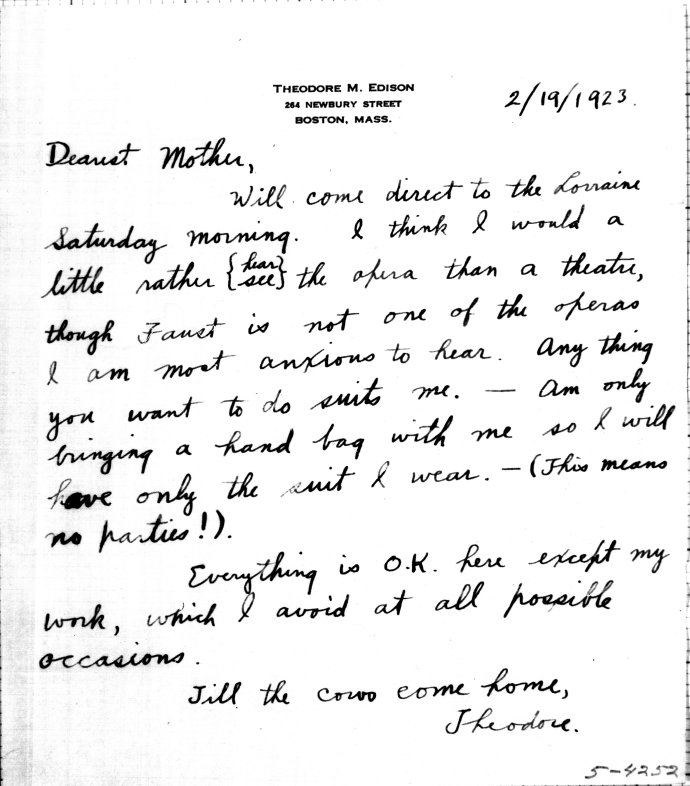 THEODORE M. EDISON
264 NEWBURY STREET
BOSTON, MASS.
2/19/1923.
Dearest Mother,
Will come direct to the Lorraine
Saturday morning. I think I would a
little rather {hear/see} the opera than a theatre,
though Faust is not one of the operas
I am most anxious to hear. Any thing
you want to do suits me. — Am only
bringing a hand bag with me so I will
have only the suit I wear. — (This means
no parties!).
Everything is O.K. here except my
work, which I avoid at all possible
occasions.
Till the cows come home,
Theodore.
5-4252